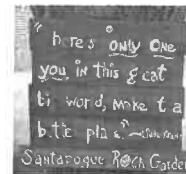 "here's only one
you in this g eat
ti word, make t a
b.t e pla
Santarogue Rock Garde